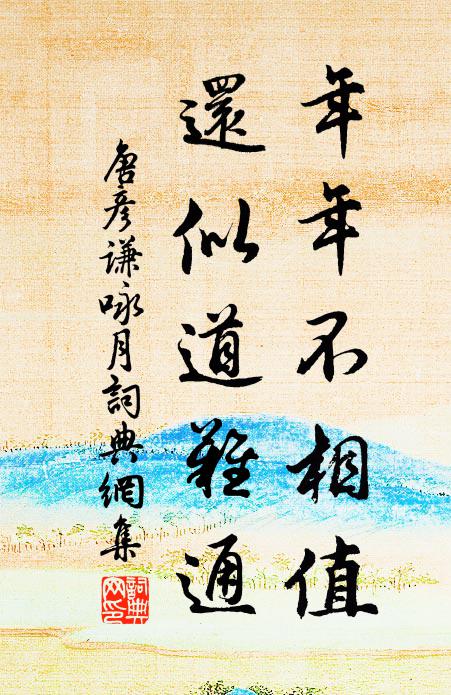 年年不相值
還似道難通
唐彦謙咏月詞典網集
詞典網印